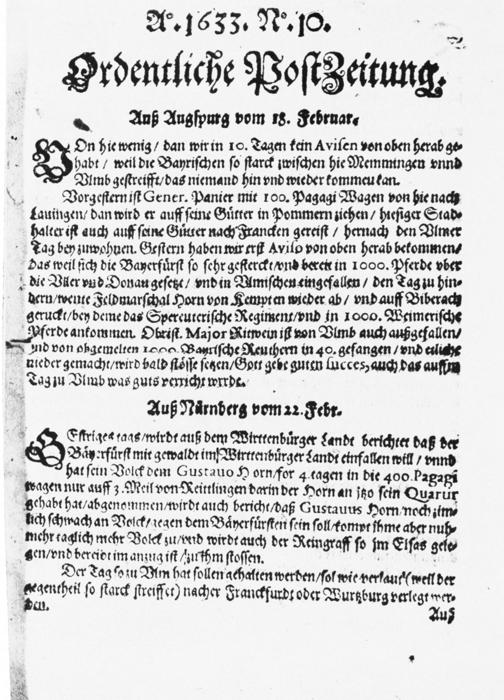 A⁰. 1633. N⁰. 10.
Ordentliche PostZeitung.
Auß Augspurg vom 18. Februar.
VOn hie wenig / dan wir in 10. Tagen kein Avisen von oben herab ge-
habt / weil die Bayrischen so starck zwischen hie Memmingen vnnd
Vlmb gestreifft / das niemand hin vnd wieder kommen kan.
Vorgestern ist Gener. Panier mit 100. Pagagi Wagen von hie nach
Lauingen / dan wird er auff seine Gütter in Pommern ziehen / hiesiger Stad-
halter ist auch auff seine Gütter nach Francken gereist / hernach den Vlmer
Tag bey zuwohnen. Gestern haben wir erst Aviso von oben herab bekommen /
das weil sich die Bayerfürst so sehr gesterckt / vnd bereit in 1000. Pferde vber
die Yller vnd Donau gesetzt / vnd in Vlmischen eingefallen / den Tag zu hin-
dern / wente Feldmarschal Horn von Kempten wieder ab / vnd auff Biberach
geruckt / bey deme das Spereuterische Regiment / vnd in 1000. Weimerische
Pferde ankommen. Obrist. Major Ritwein ist von Vlmb auch außgefallen /
vnd von obgemelten 1000. Bayrische Reuthern in 40. gefangen / vnd etliche
nieder gemacht / wird bald stösse setzen / Gott gebe guten succes, auch das auffm
Tag zu Vlmb was guts verricht werde.
Auß Nürnberg vom 22. Febr.
GEstriges tags / wirdt auß dem Wirttenbürger Landt berichtet daß der
Bäyerfürst mit gewaldt im Wirttenbürger Landt einfallen will / vnnd
hat sein Volck dem Gustavo Horn / for 4. tagen in die 400. Pagagi
wagen nur auff 3. Meil von Reittlingen darin der Horn an jtzo sein Quartir
gehabt hat / abgenommen / wirdt auch bericht / daß Gustavus Horn noch zim-
lich schwach an Volck / gegen dem Bäyerfürsten sein soll / kompt ihme aber nuh-
mehr täglich mehr Volck zu / vnd wirdt auch der Reingraff so im Elsas gele-
gen / vnd bereidt im anzug ist / zu ihm stossen.
Der Tag so zu Vlm hat sollen gehalten werden / sol wie verlaut (weil der
gegentheil so starck streiffet) nacher Franckfurdt oder Wurtzburg verlegt wer-
den.
Auß